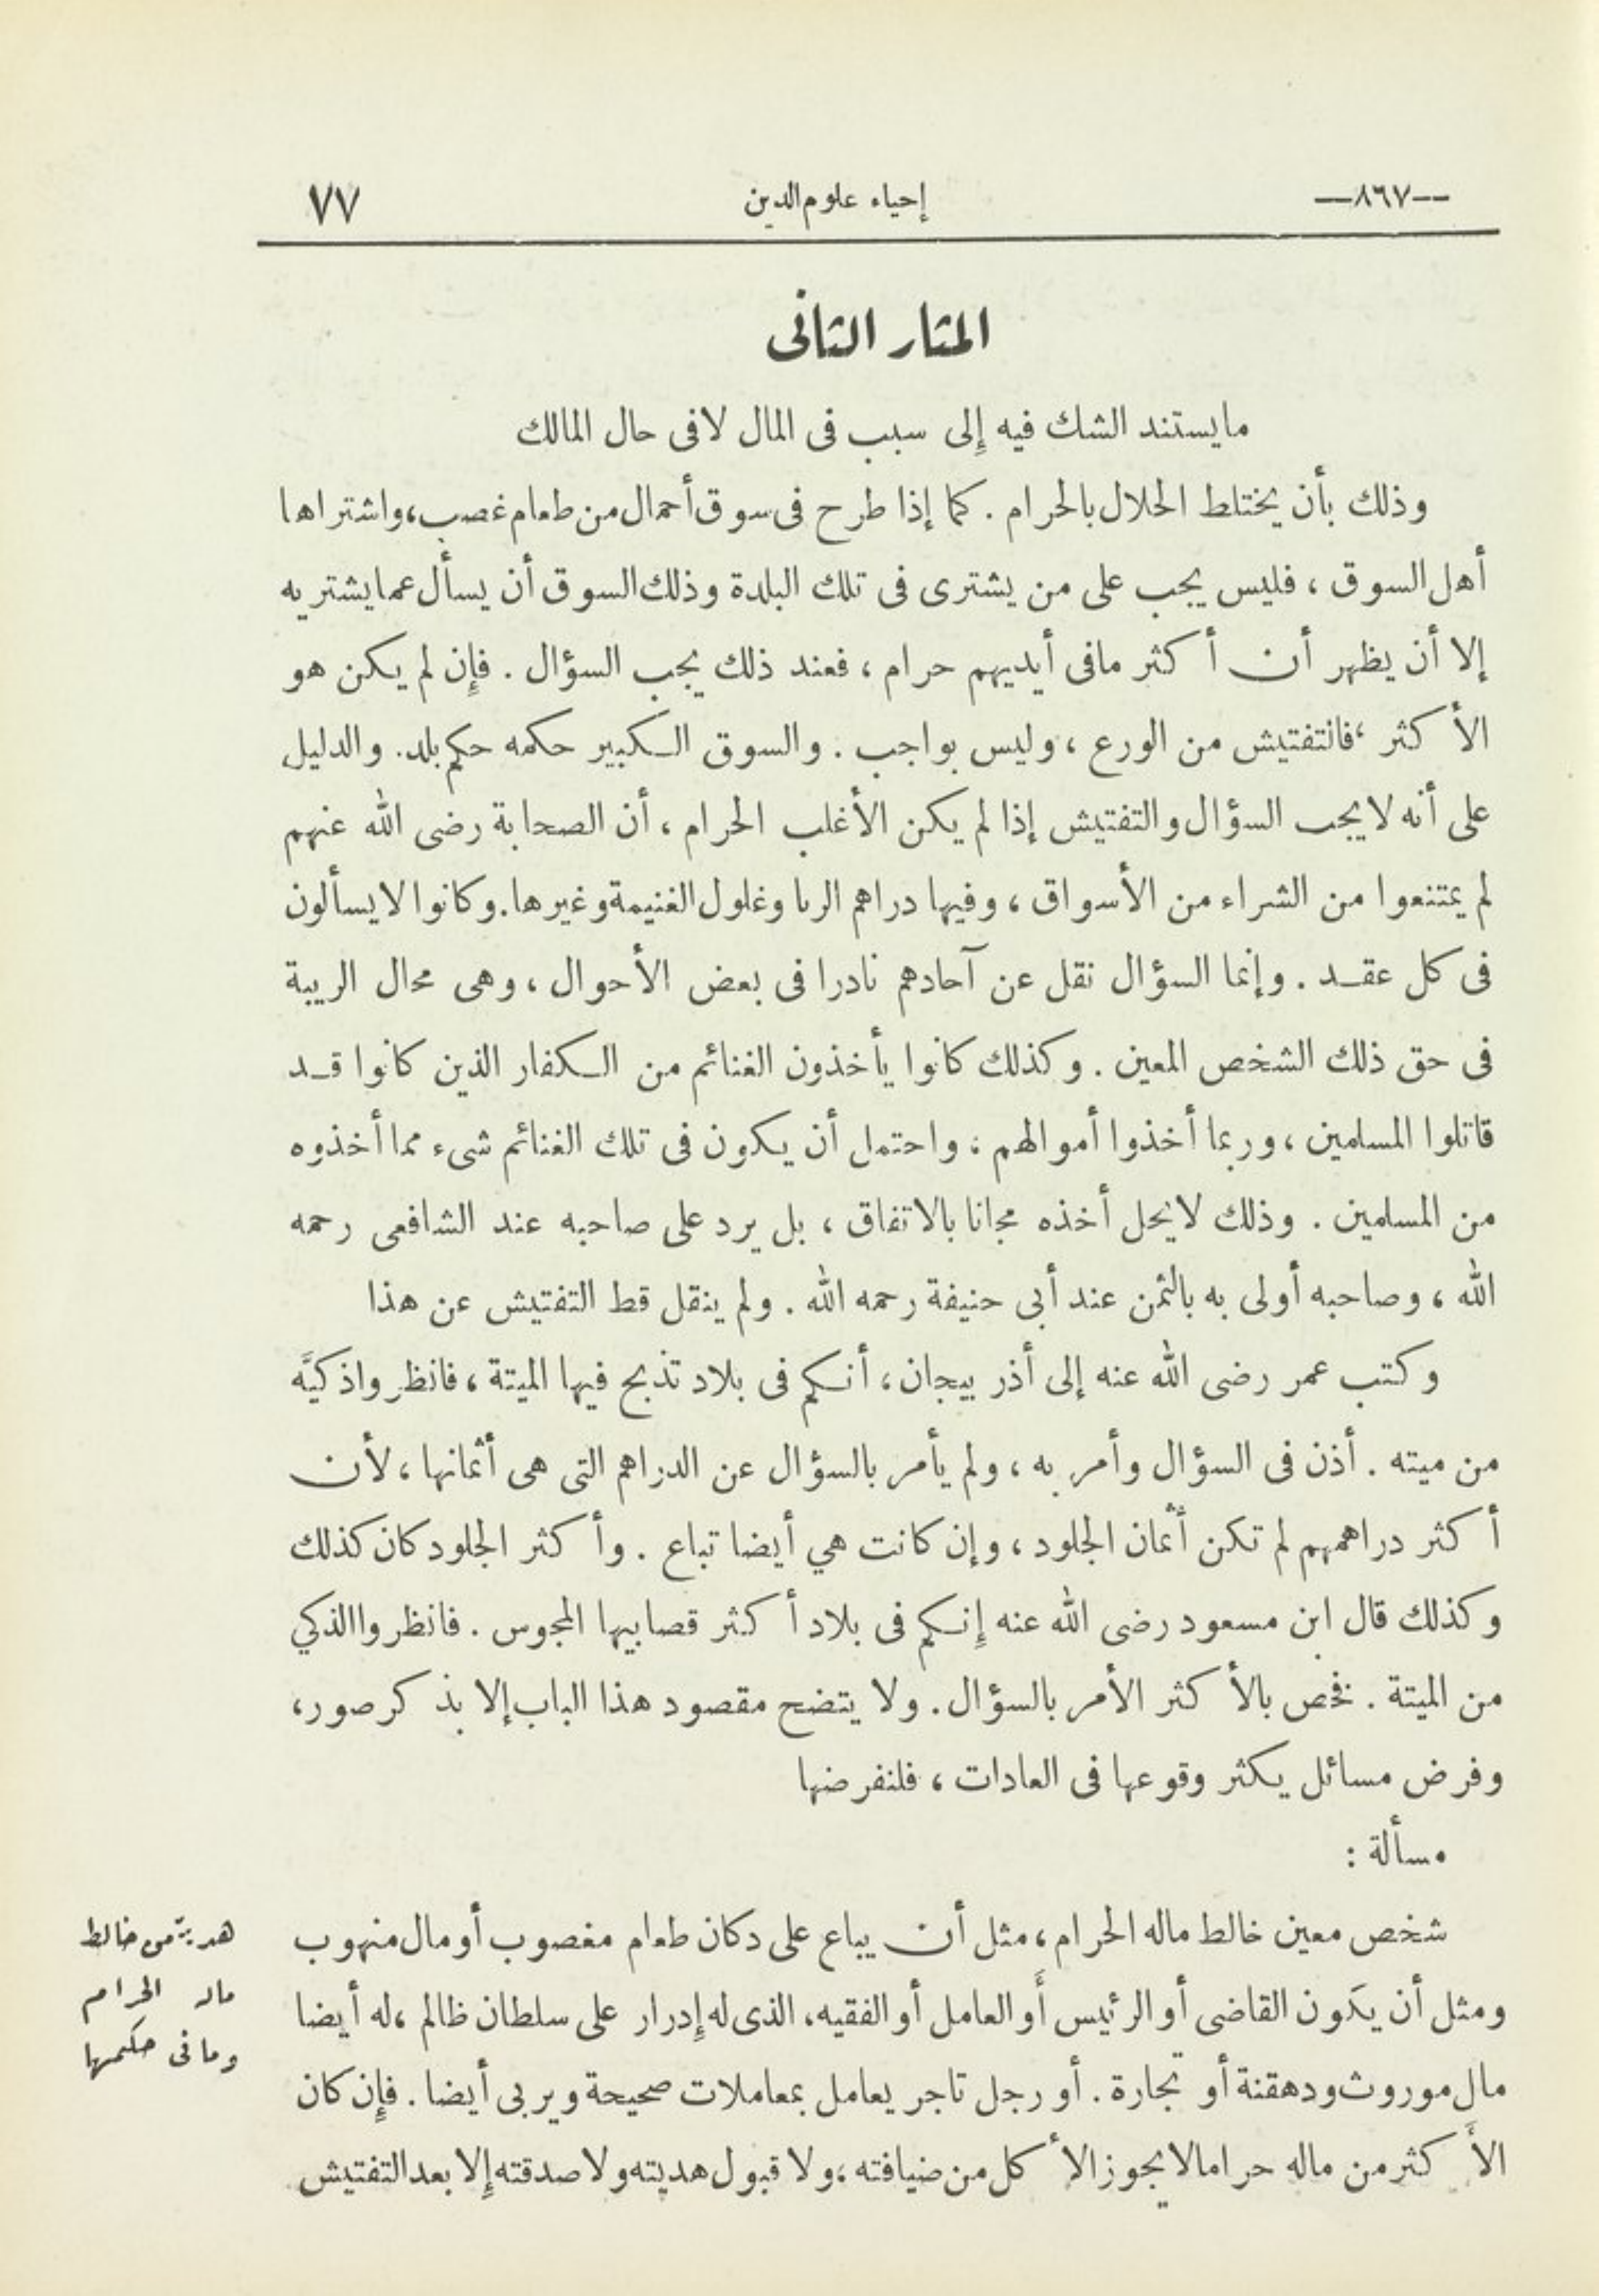 --٨٦٧--
إحياء علوم الدين
٧٧
المثار الثانى
ما يستند الشك فيه إلى سبب فى المال لا فى حال المالك
وذلك بأن يختلط الحلال بالحرام . كما إذا طرح فى سوق أحمال من طعام غصب، واشتراها
أهل السوق ، فليس يجب على من يشترى فى تلك البلدة وذلك السوق أن يسأل عما يشتريه
إلا أن يظهر أن أكثر ما فى أيديهم حرام ، فعند ذلك يجب السؤال . فإن لم يكن هو
الأكثر ، فالتفتيش من الورع ، وليس بواجب . والسوق الكبير حكمه حكم بلد. والدليل
على أنه لا يجب السؤال والتفتيش إذا لم يكن الأغلب الحرام ، أن الصحابة رضى الله عنهم
لم يمتنعوا من الشراء من الأسواق ، وفيها دراهم الربا وغلول الغنيمة وغيرها. وكانوا لا يسألون
فى كل عقد . وإنما السؤال نقل عن آحادهم نادرا فى بعض الأحوال ، وهى محال الريبة
فى حق ذلك الشخص المعين . وكذلك كانوا يأخذون الغنائم من الكفار الذين كانوا قد
قاتلوا المسلمين ، وربما أخذوا أموالهم ، واحتمل أن يكون فى تلك الغنائم شىء مما أخذوه
من المسلمين . وذلك لا يحل أخذه مجانا بالاتفاق ، بل يرد على صاحبه عند الشافعى رحمه
الله ، وصاحبه أولى به بالثمن عند أبى حنيفة رحمه الله . ولم ينقل قط التفتيش عن هذا
وكتب عمر رضى الله عنه إلى أذربيجان ، أنكم فى بلاد تذبح فيها الميتة ، فانظروا ذكيَّه
من ميته . أذن فى السؤال وأمر به ، ولم يأمر بالسؤال عن الدراهم التى هى أثمانها ، لأن
أكثر دراهمهم لم تكن أثمان الجلود ، وإن كانت هي أيضا تباع . وأكثر الجلود كان كذلك
وكذلك قال ابن مسعود رضى الله عنه إنكم فى بلاد أكثر قصابيها المجوس . فانظروا الذكي
من الميتة . فخص بالأكثر الأمر بالسؤال . ولا يتضح مقصود هذا الباب إلا بذكر صور،
وفرض مسائل يكثر وقوعها فى العادات ، فلنفرضها
مسألة :
شخص معين خالط ماله الحرام ، مثل أن يباع على دكان طعام مغصوب أو مال منهوب
ومثل أن يكون القاضى أو الرئيس أو العامل أو الفقيه ، الذى له إدرار على سلطان ظالم ، له أيضا
مال موروث ودهقنة أو تجارة . أو رجل تاجر يعامل بمعاملات صحيحة ويربى أيضا . فإن كان
الأكثر من ماله حراما لا يجوز الأكل من ضيافته ، ولا قبول هديته ولا صدقته إلا بعد التفتيش
هدية من خالط
ماله الحرام
وما فى حكمها